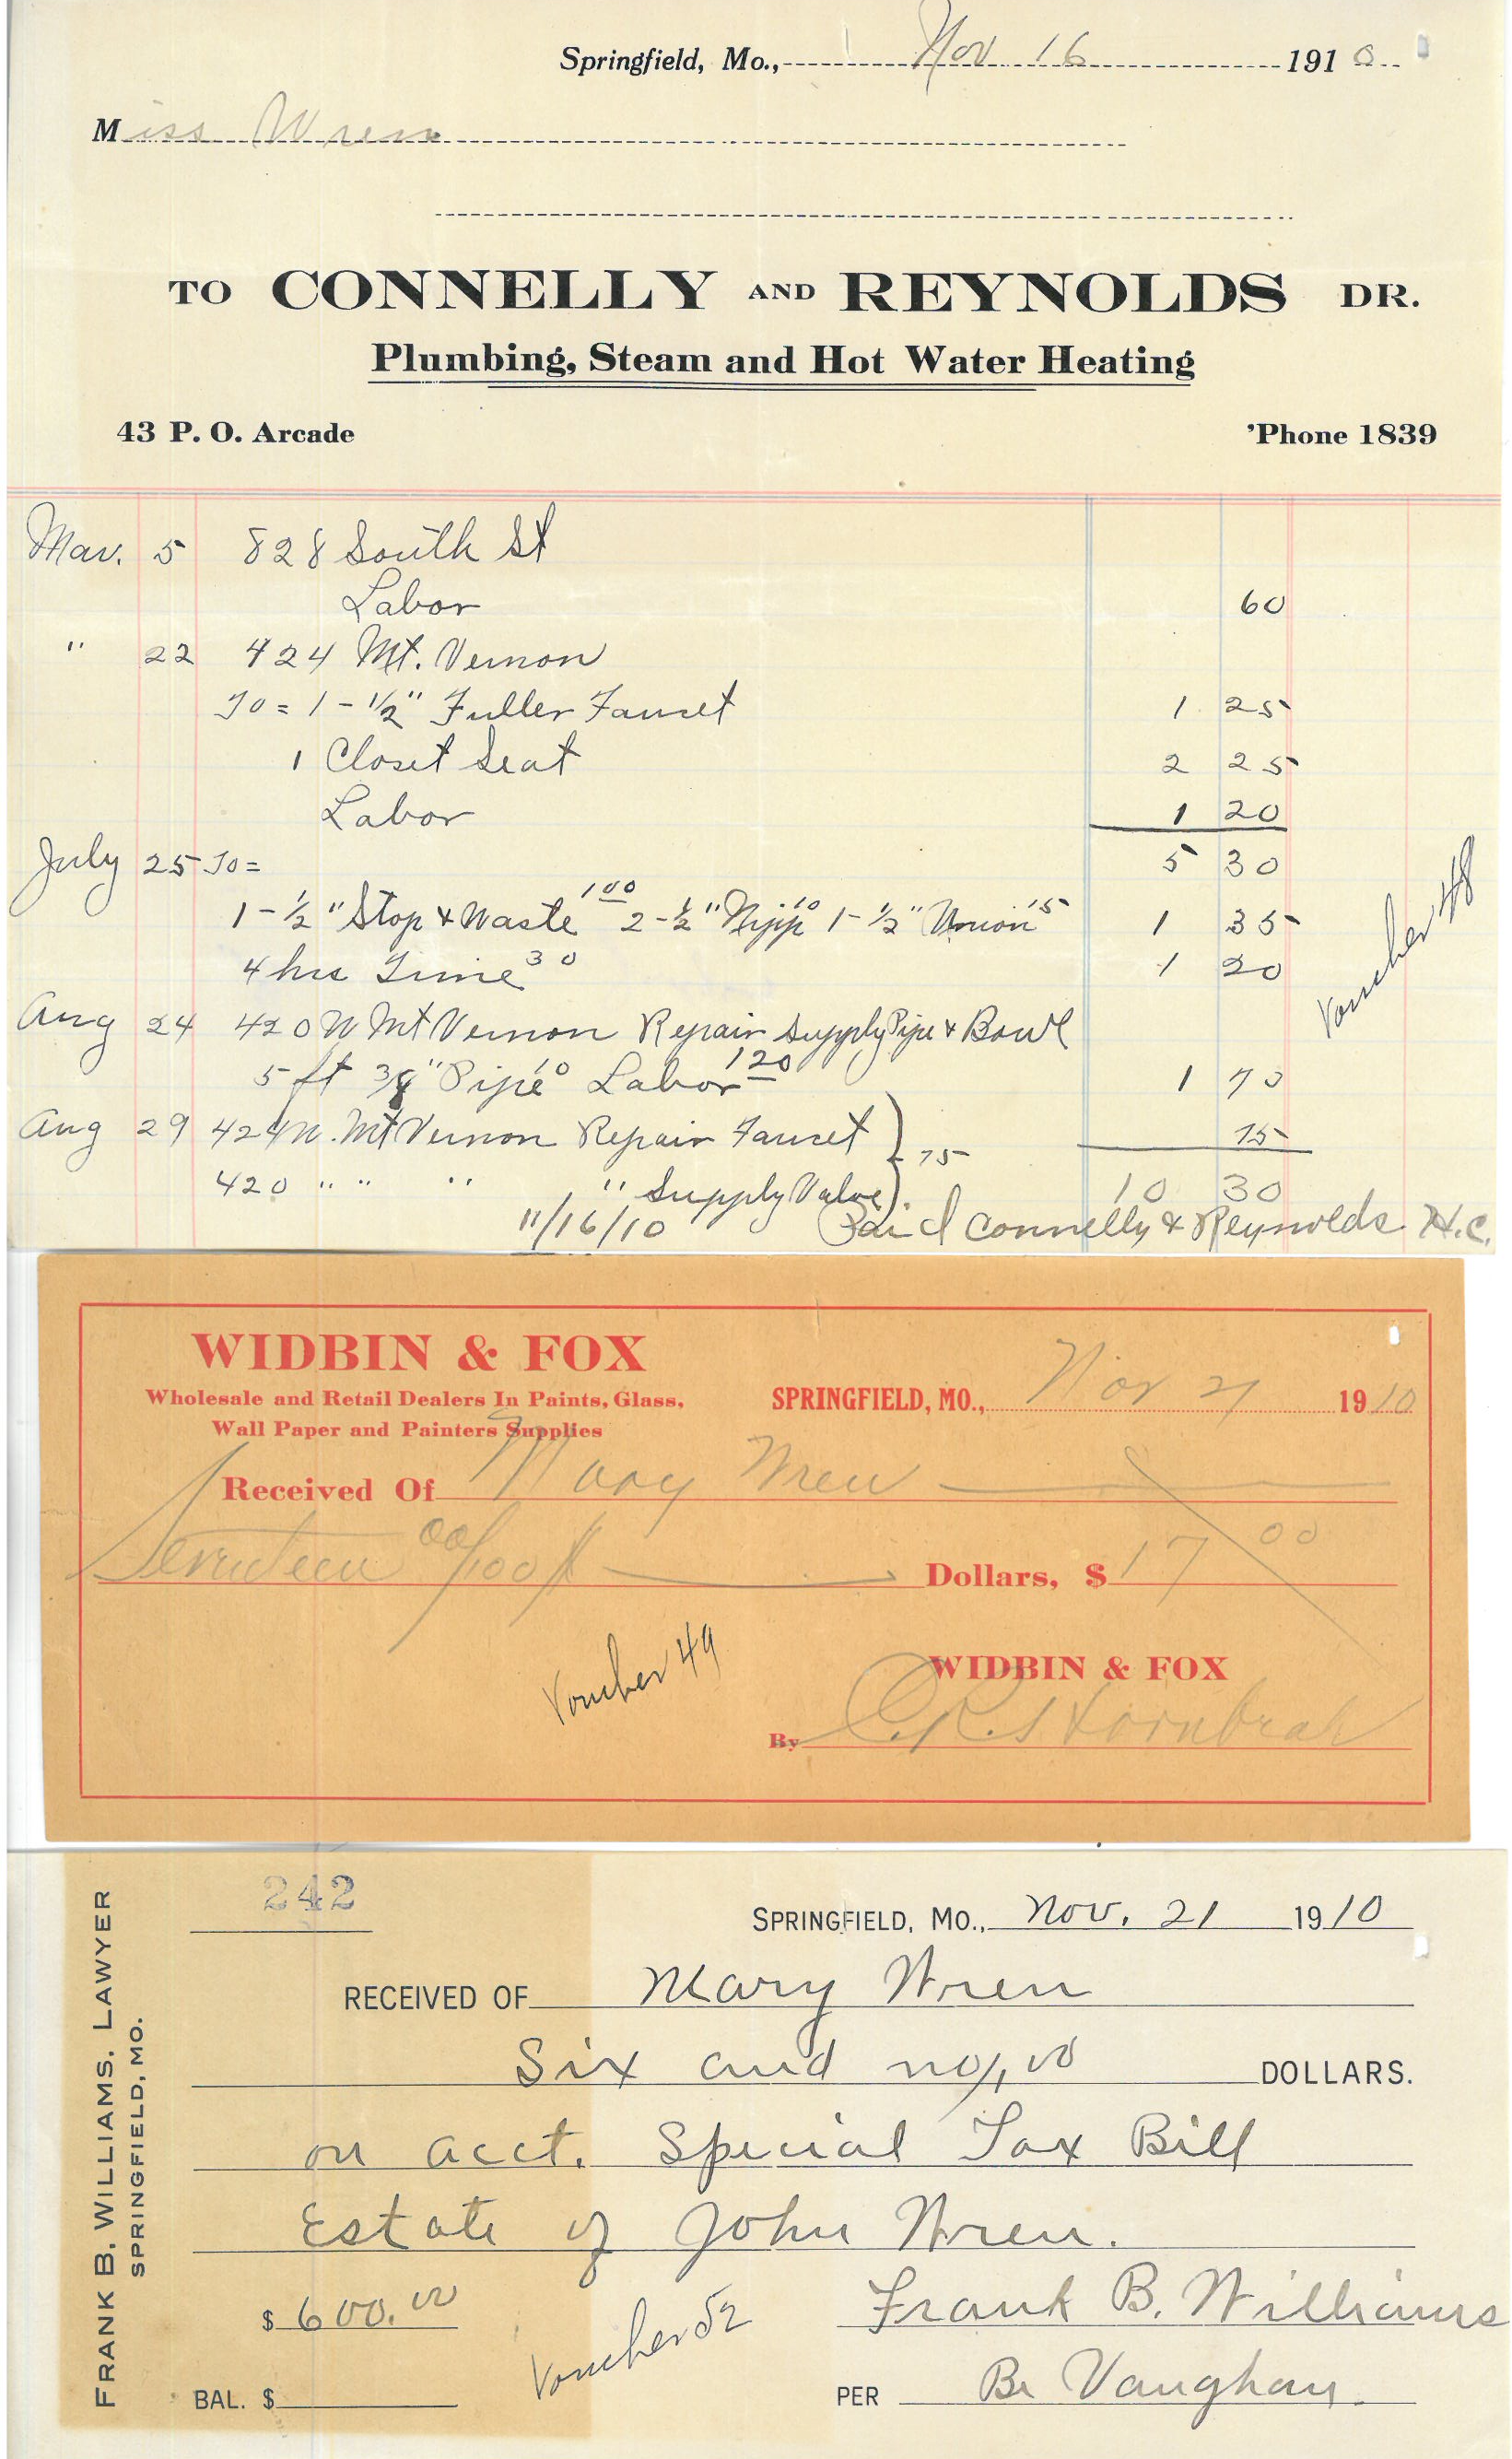 Springfield, Mo., Nov 16 1910
Miss Wren
TO CONNELLY AND REYNOLDS DR.
Plumbing, Steam and Hot Water Heating
43 P. O. Arcade 'Phone 1839
Mar. 5 828 South St
Labor 60
" 22 424 Mt. Vernon
To = 1 - 1/2" Fuller Faucet 1 25
1 Closet Seat 2 25
Labor 1 20
July 25 To = 5 30
1 - 1/2" Stop & Waste 1 00 2 - 1/2" Nipp 10 1 - 1/2" Union 15 1 35
4 hrs Time 30 1 20
Voucher 48
Aug 24 420 N Mt Vernon Repair Supply Pipe & Bowl
5 ft 3/8" Pipe 10 Labor 1 20 1 70
Aug 29 424 N. Mt Vernon Repair Faucet } 75 75
420 " " " " Supply Valve 10 30
11/16/10 Paid Connelly & Reynolds H.C.
WIDBIN & FOX
Wholesale and Retail Dealers In Paints, Glass,
Wall Paper and Painters Supplies
SPRINGFIELD, MO., Nov 21 1910
Received Of Mary Wren
Seventeen 00/100 Dollars, $17 00
Voucher 49
WIDBIN & FOX
By
FRANK B. WILLIAMS, LAWYER
SPRINGFIELD, MO.
242
SPRINGFIELD, MO., Nov. 21 1910
RECEIVED OF Mary Wren
Six and no/100 DOLLARS.
on acct. Special Tax Bill
Estate of John Wren.
$ 600.00 Voucher 52 Frank B. Williams
BAL. $ PER Be Vaughan.